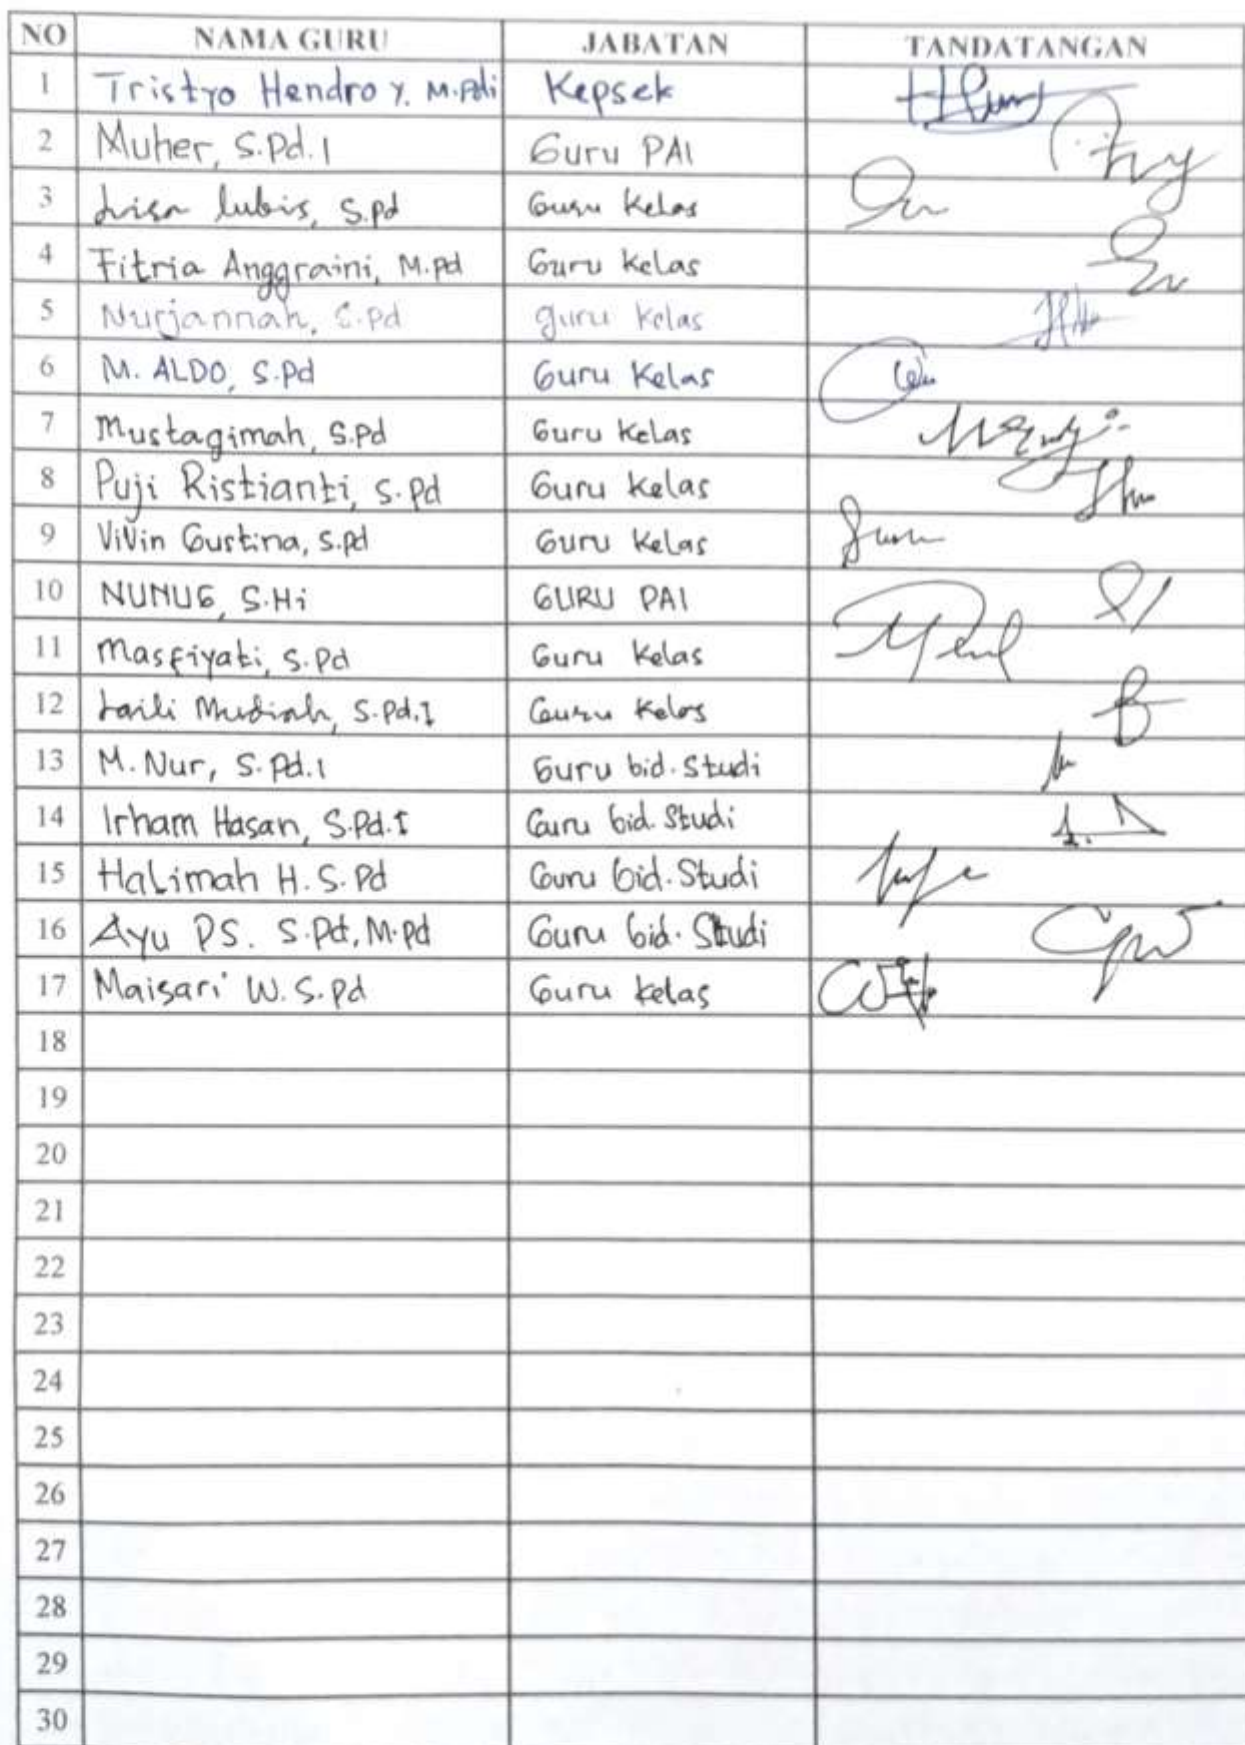 NO NAMA GURU JABATAN TANDATANGAN
1 Tristyo Hendro Y. M.Pdi Kepsek
2 Muher, S.Pd.I Guru PAI
3 Lisa lubis, S.Pd Guru Kelas
4 Fitria Anggraini, M.Pd Guru Kelas
5 Nurjannah, S.Pd guru kelas
6 M. ALDO, S.Pd Guru Kelas
7 Mustagimah, S.Pd Guru Kelas
8 Puji Ristianti, S.Pd Guru Kelas
9 ViVin Gustina, S.Pd Guru Kelas
10 NUNUG, S.Hi GURU PAI
11 Masfiyati, S.Pd Guru Kelas
12 Laili Mudiah, S.Pd.I Guru Kelas
13 M. Nur, S.Pd.I Guru bid. Studi
14 Irham Hasan, S.Pd.I Guru bid. Studi
15 Halimah H. S.Pd Guru bid. Studi
16 Ayu PS. S.Pd, M.Pd Guru bid. Studi
17 Maisari W. S.Pd Guru kelas
18
19
20
21
22
23
24
25
26
27
28
29
30